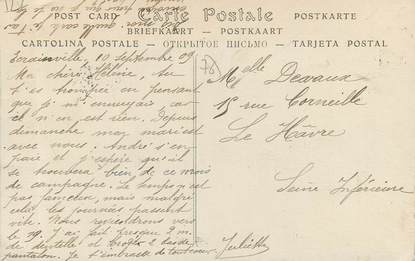 Carte Postale
POST CARD
POSTKARTE
BRIEFKAART — POSTKAART
CARTOLINA POSTALE — ОТКРЫТОЕ ПИСЬМО — TARJETA POSTAL
Ecrainville, 10 septembre 09
Ma chère Hélène, tu
t'es trompée en pensant
que je m'ennuyais car
il n'en est rien. Depuis
dimanche mon mari est
avec nous. André s'en
pare et j'espère qu'il
se trouvera bien de ce mois
de campagne. Le temps n'est
pas fameux, mais malgré
cela les journées passent
vite. Nous reviendrons vers
le 29. J'ai fait presque 2 m.
de dentelle et 2 bas de
pantalon. Je t'embrasse de tout cœur
Juliette
76
Melle Devaux
15 rue Corneille
Le Hâvre
Seine Inférieure